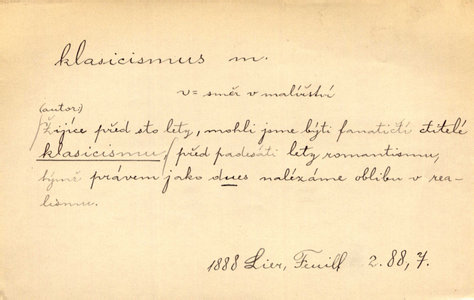 klasicismus m.
v = směr v malířství
(autor:)
Žijíce před sto lety, mohli jsme býti fanatičtí ctitelé
klasicismu, před padesáti lety romantismu,
týmž právem jako dnes nalézáme oblibu v rea-
lismu.
1888 Lier, Feuill 2.88, 7.